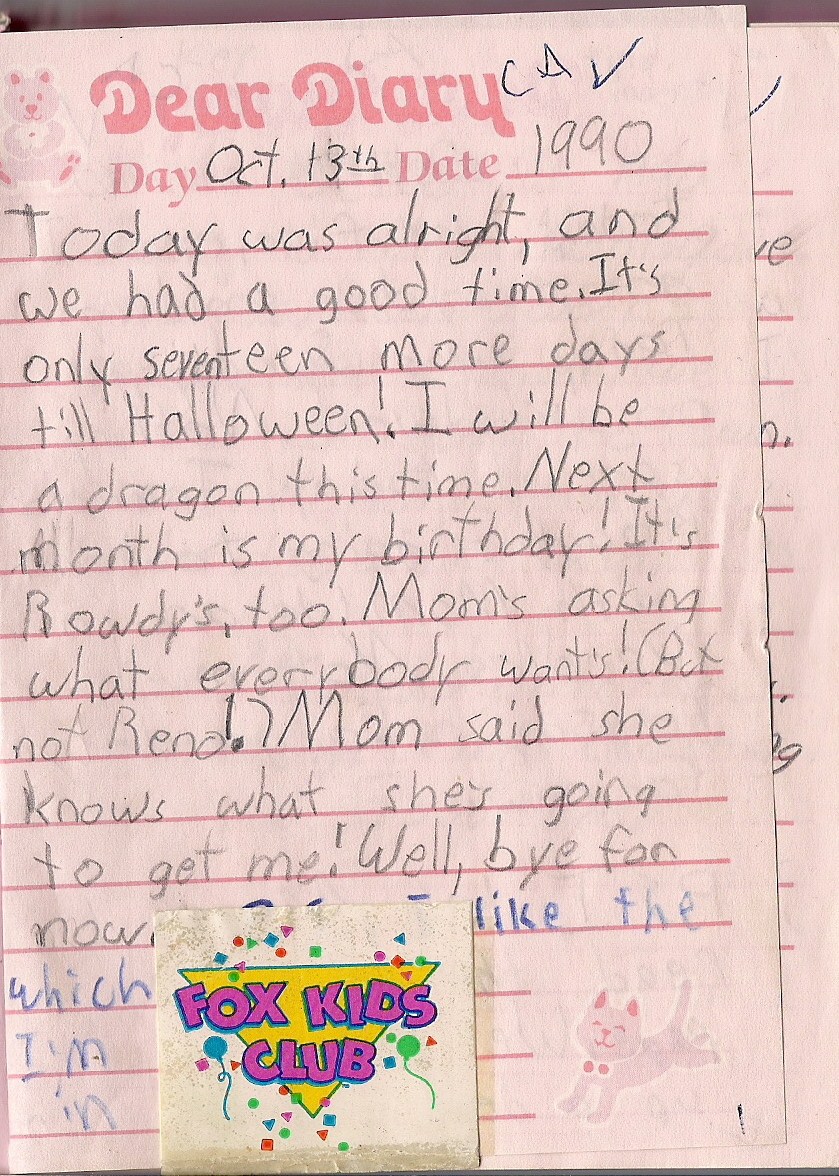 Dear Diary
Day Oct. 13th Date 1990
Today was alright, and
we had a good time. It's
only seventeen more days
till Halloween! I will be
a dragon this time. Next
month is my birthday! It's
Rowdy's, too. Mom's asking
what everybody wants! (But
not Reno!) Mom said she
knows what she's going
to get me! Well, bye for
now. like the
which
I'm
in
FOX KIDS
CLUB